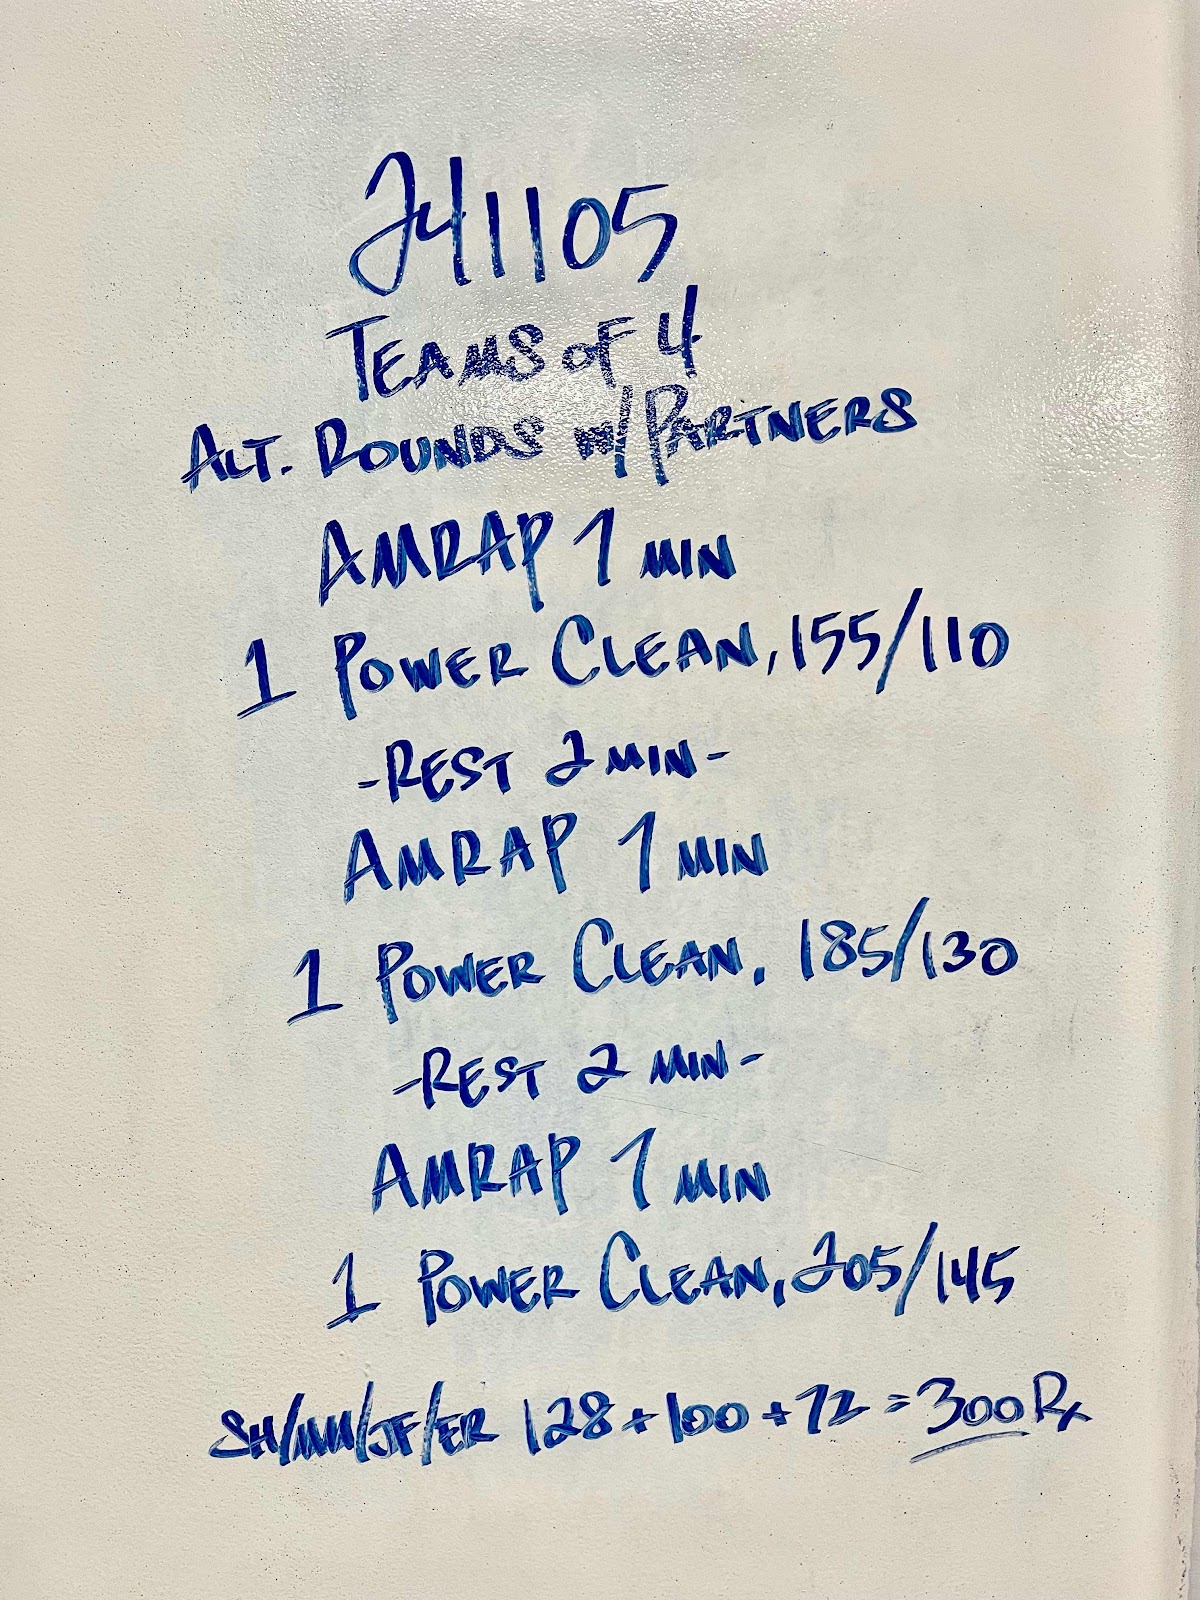 241105
TEAMS OF 4
ALT. ROUNDS W/PARTNERS
AMRAP 1 MIN
1 POWER CLEAN, 155/110
-REST 2 MIN-
AMRAP 1 MIN
1 POWER CLEAN, 185/130
-REST 2 MIN-
AMRAP 1 MIN
1 POWER CLEAN, 205/145
SH/MM/JF/ER 128+100+72=300 Rx